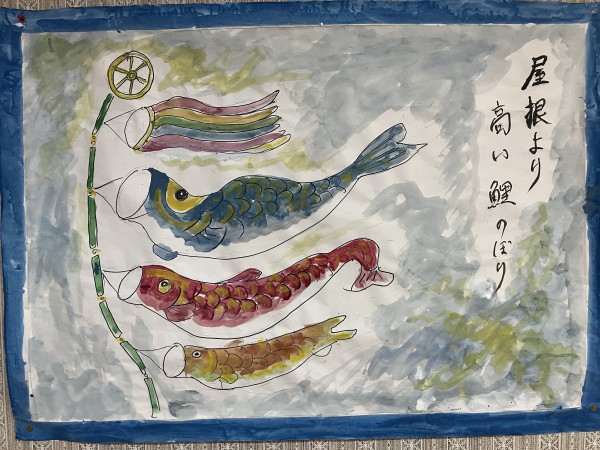 屋根より
高い鯉のぼり